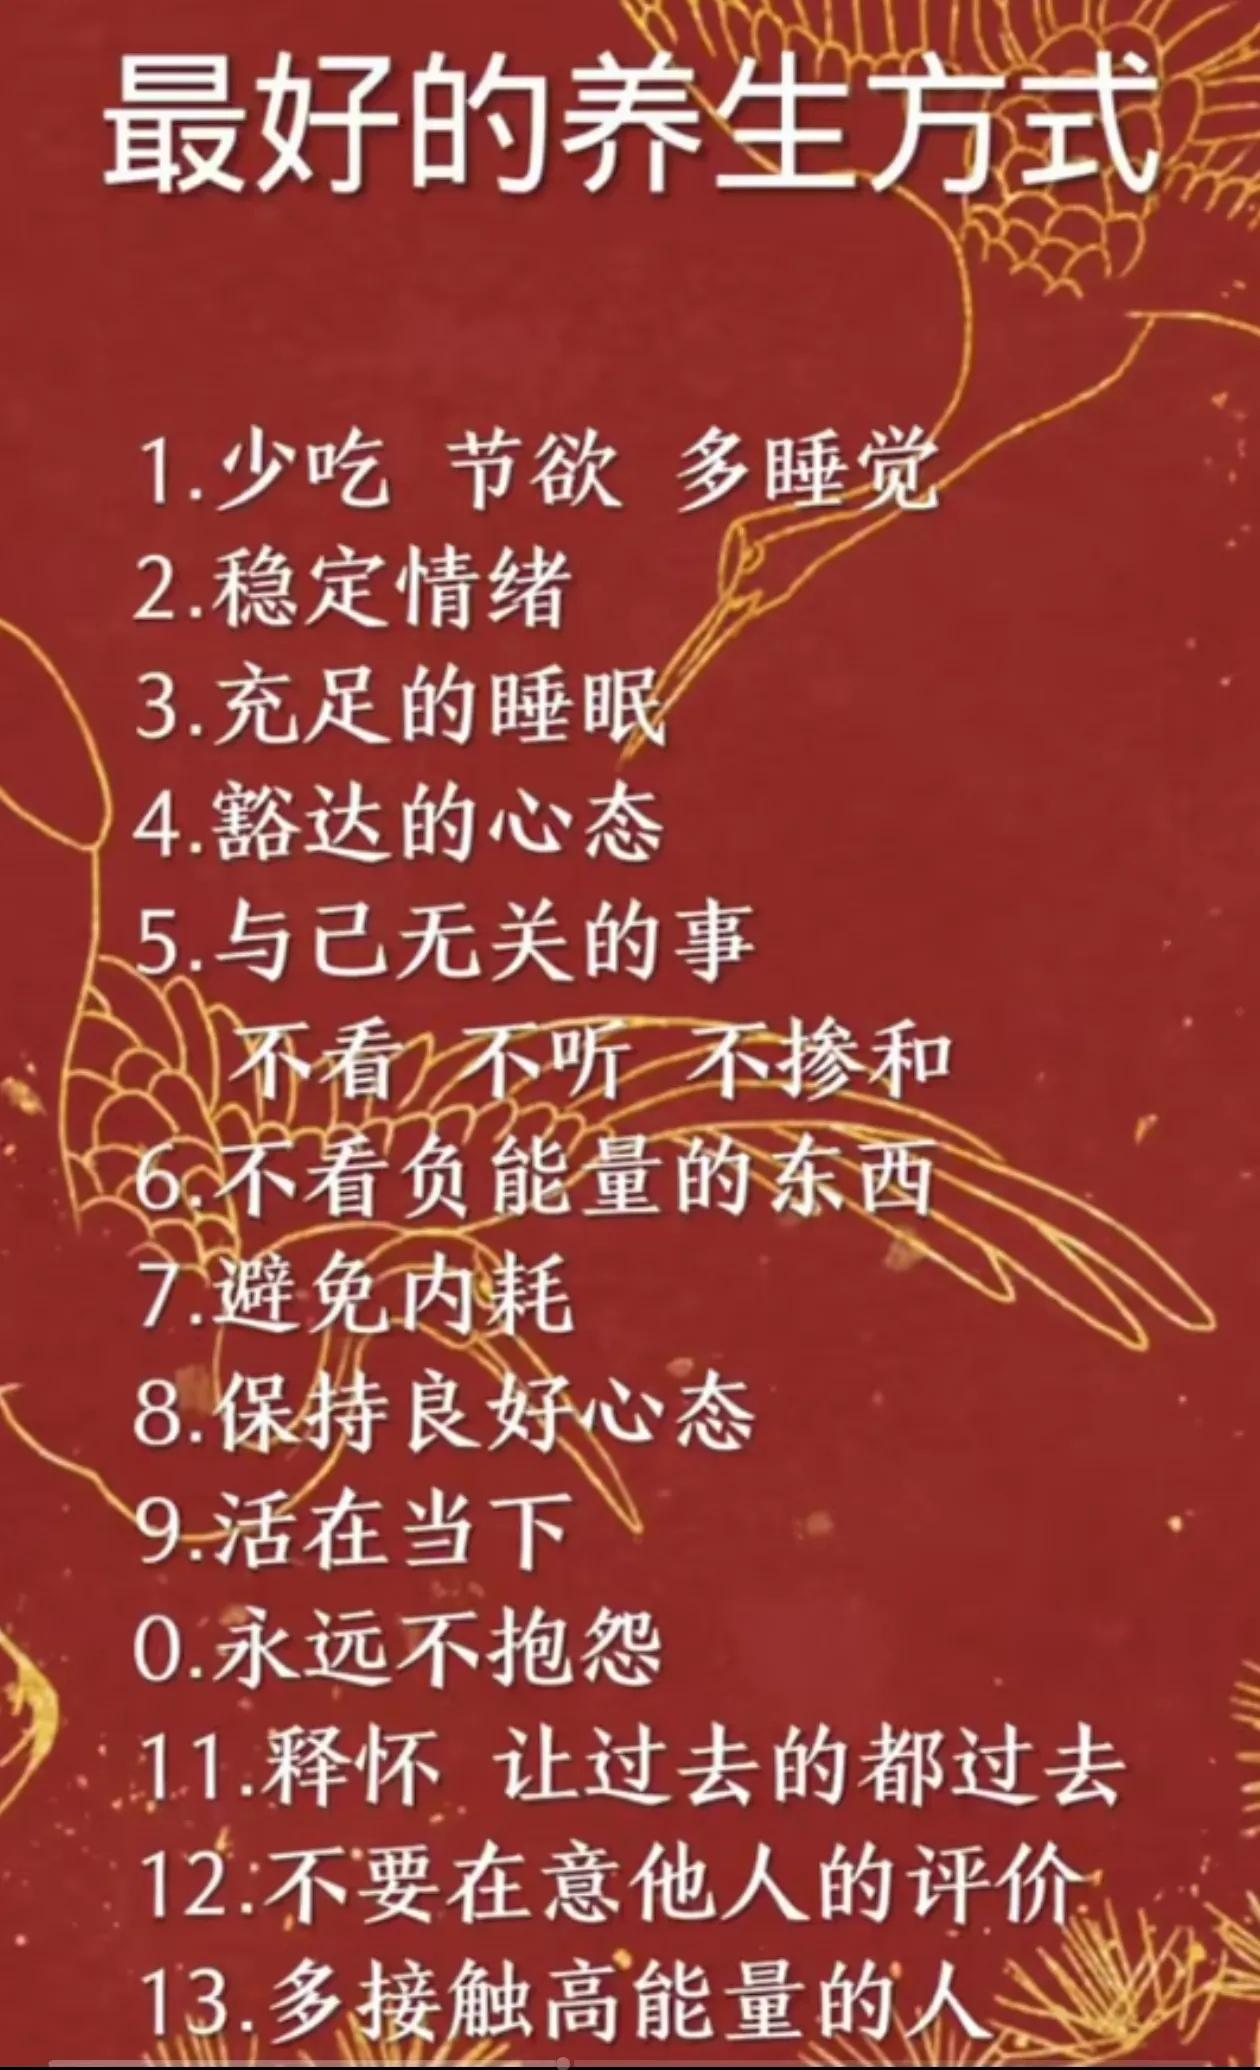 最好的养生方式
1.少吃 节欲 多睡觉
2.稳定情绪
3.充足的睡眠
4.豁达的心态
5.与己无关的事
不看 不听 不掺和
6.不看负能量的东西
7.避免内耗
8.保持良好心态
9.活在当下
0.永远不抱怨
11.释怀 让过去的都过去
12.不要在意他人的评价
13.多接触高能量的人